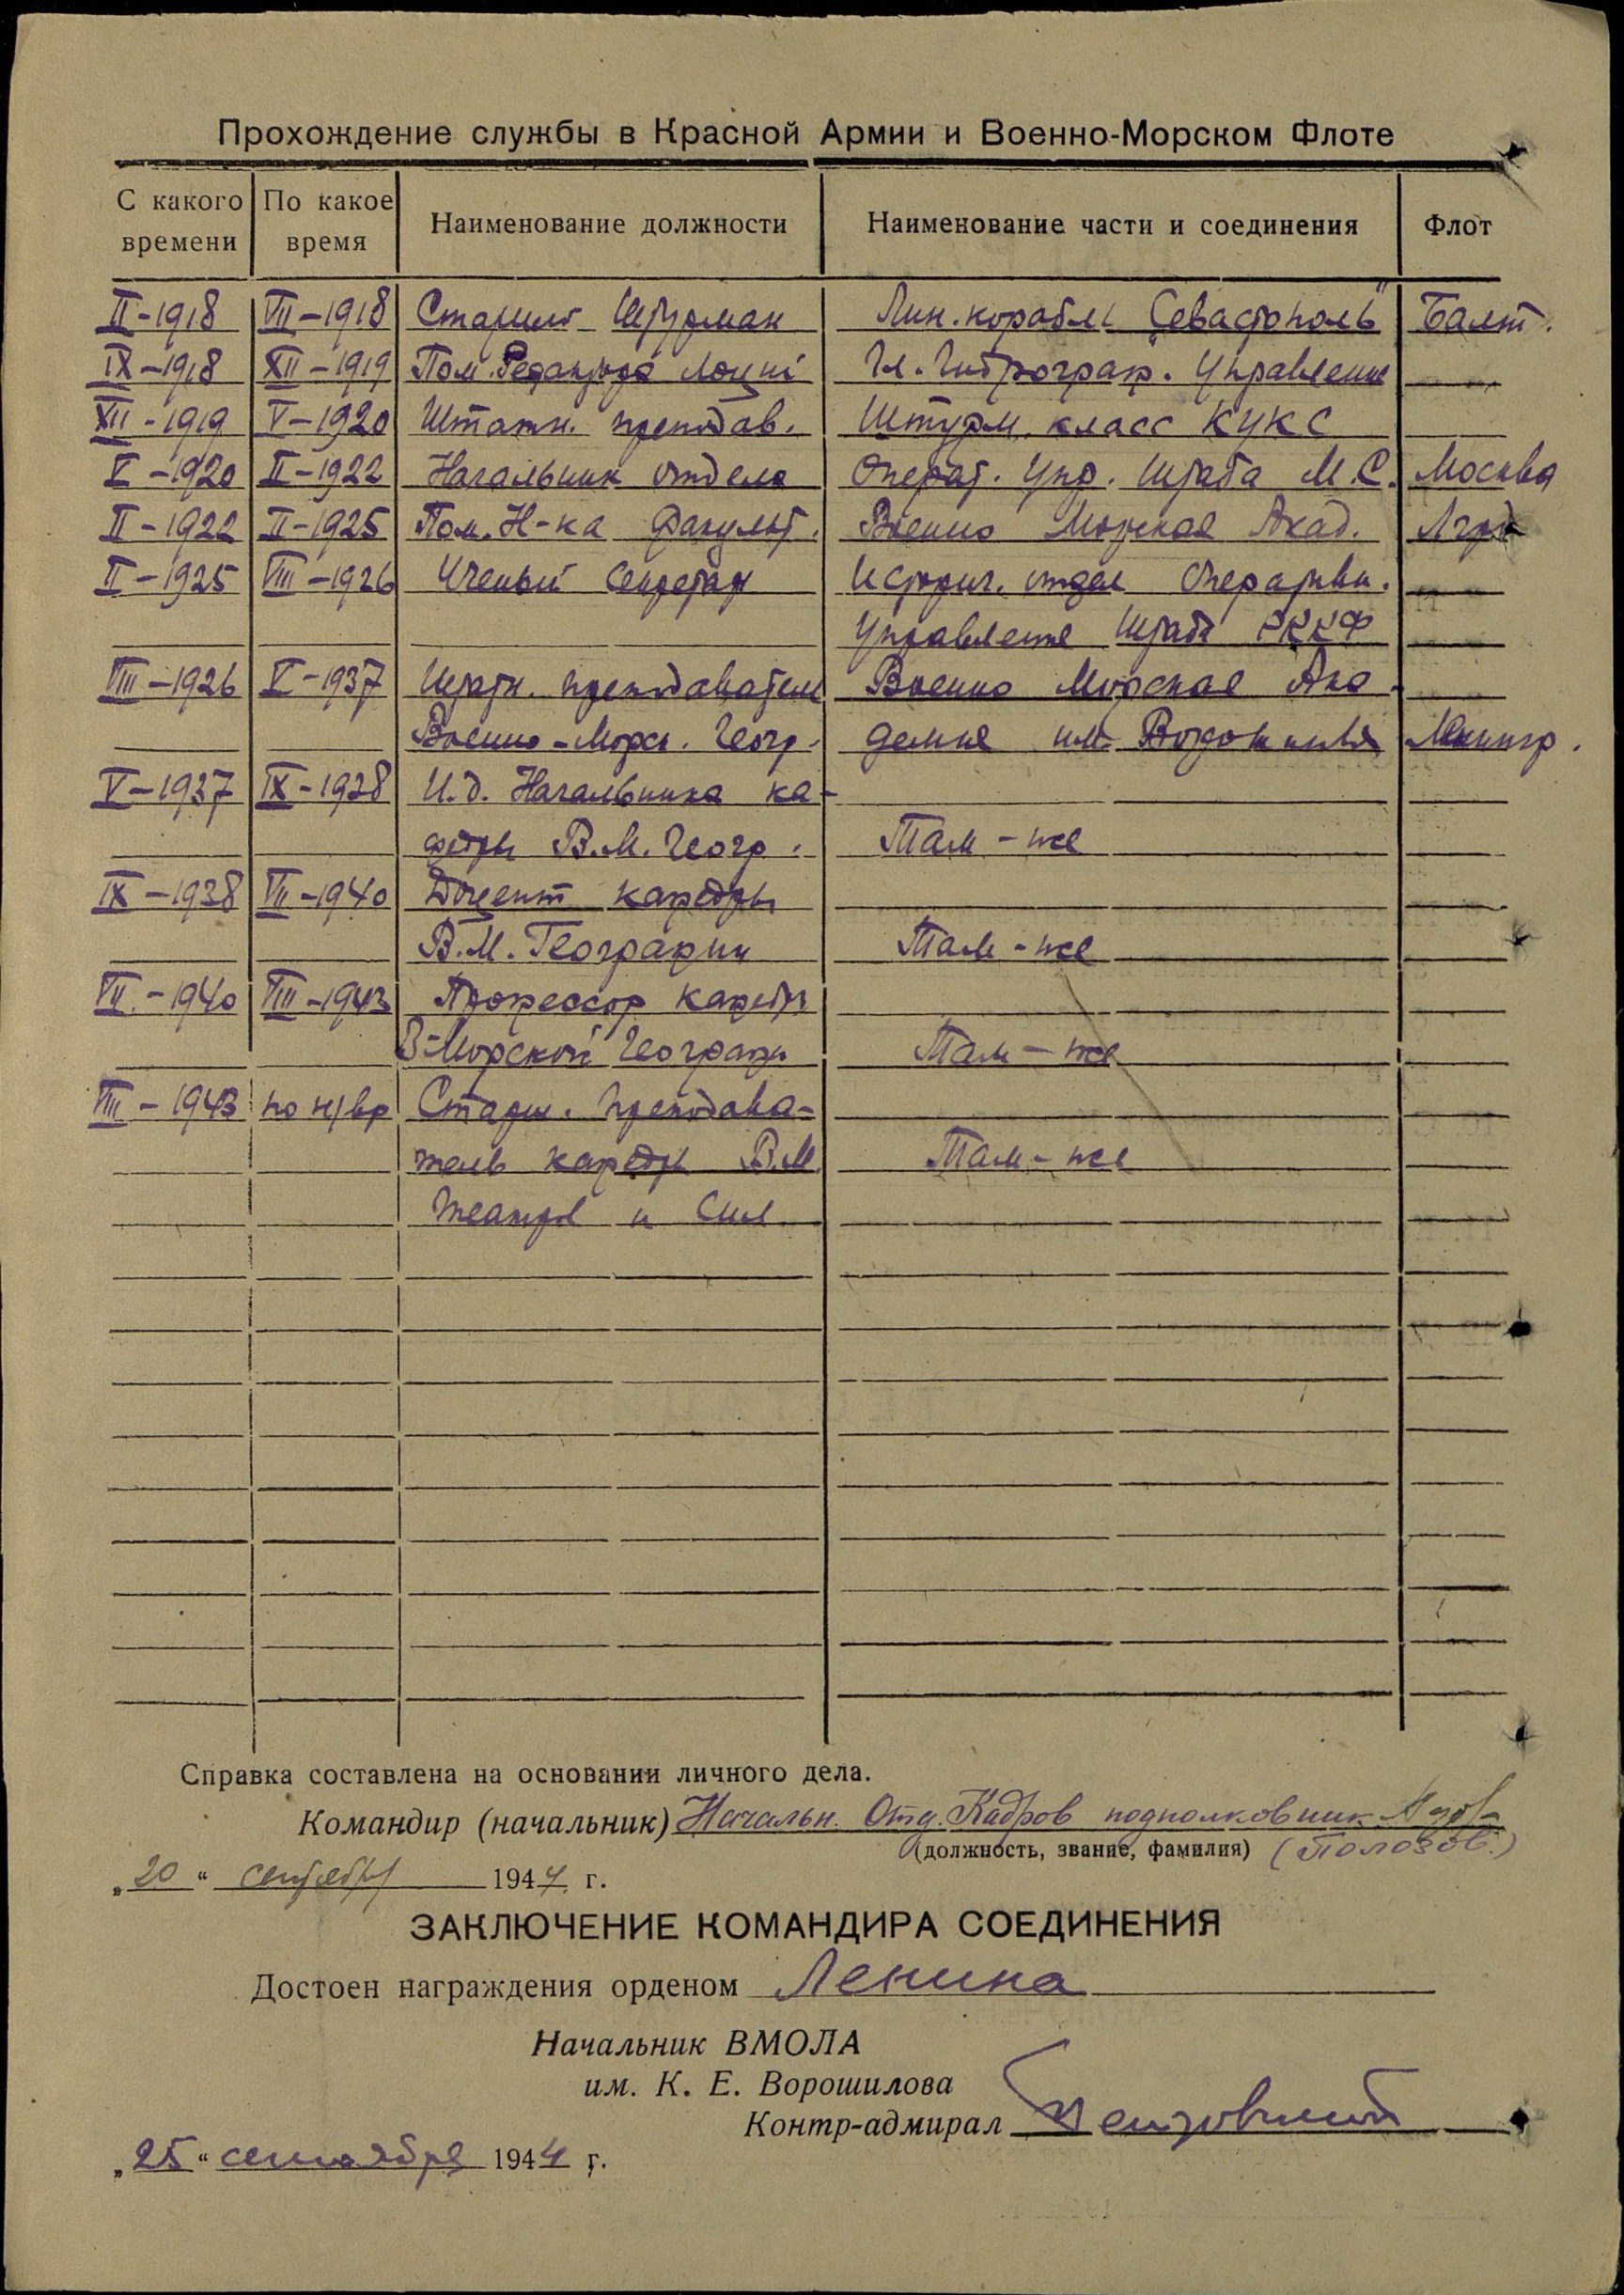 Прохождение службы в Красной Армии и Военно-Морском Флоте
С какого времени | По какое время | Наименование должности | Наименование части и соединения | Флот
II-1918 | VII-1918 | Старший Штурман | Лин. корабль „Севастополь" | Балт.
IX-1918 | XII-1919 | Пом. Редактора Лоций | Гл. Гидрограф. Управление
XII-1919 | V-1920 | Штатн. преподав. | Штурм. класс КУКС
V-1920 | II-1922 | Начальник отдела | Операт. Упр. Штаба М.С. | Москва
II-1922 | II-1925 | Пом. Н-ка Факульт. | Военно Морская Акад. | Лгрд
II-1925 | VIII-1926 | Ученый Секретарь | Историч. отдел Оперативн.
Управления Штаба РККФ
VIII-1926 | V-1937 | Штатн. преподаватель | Военно Морская Ака-
Военно-Морск. Геогр. | демия им. Ворошилова | Ленингр.
V-1937 | IX-1938 | И.д. Начальника ка-
федры В.М. Геогр. | Там-же
IX-1938 | VII-1940 | Доцент кафедры
В.М. Географии | Там-же
VII-1940 | VIII-1943 | Профессор кафедры
В-Морской Географии | Там-же
VIII-1943 | по н/вр | Старш. преподава-
тель кафедры В.М. | Там-же
Театров и Сил
Справка составлена на основании личного дела.
Командир (начальник) Начальн. Отд. Кадров подполковник
(должность, звание, фамилия) (Полозов.)
„20" сентября 1944 г.
ЗАКЛЮЧЕНИЕ КОМАНДИРА СОЕДИНЕНИЯ
Достоен награждения орденом Ленина
Начальник ВМОЛА
им. К. Е. Ворошилова
Контр-адмирал
„25" сентября 1944 г.